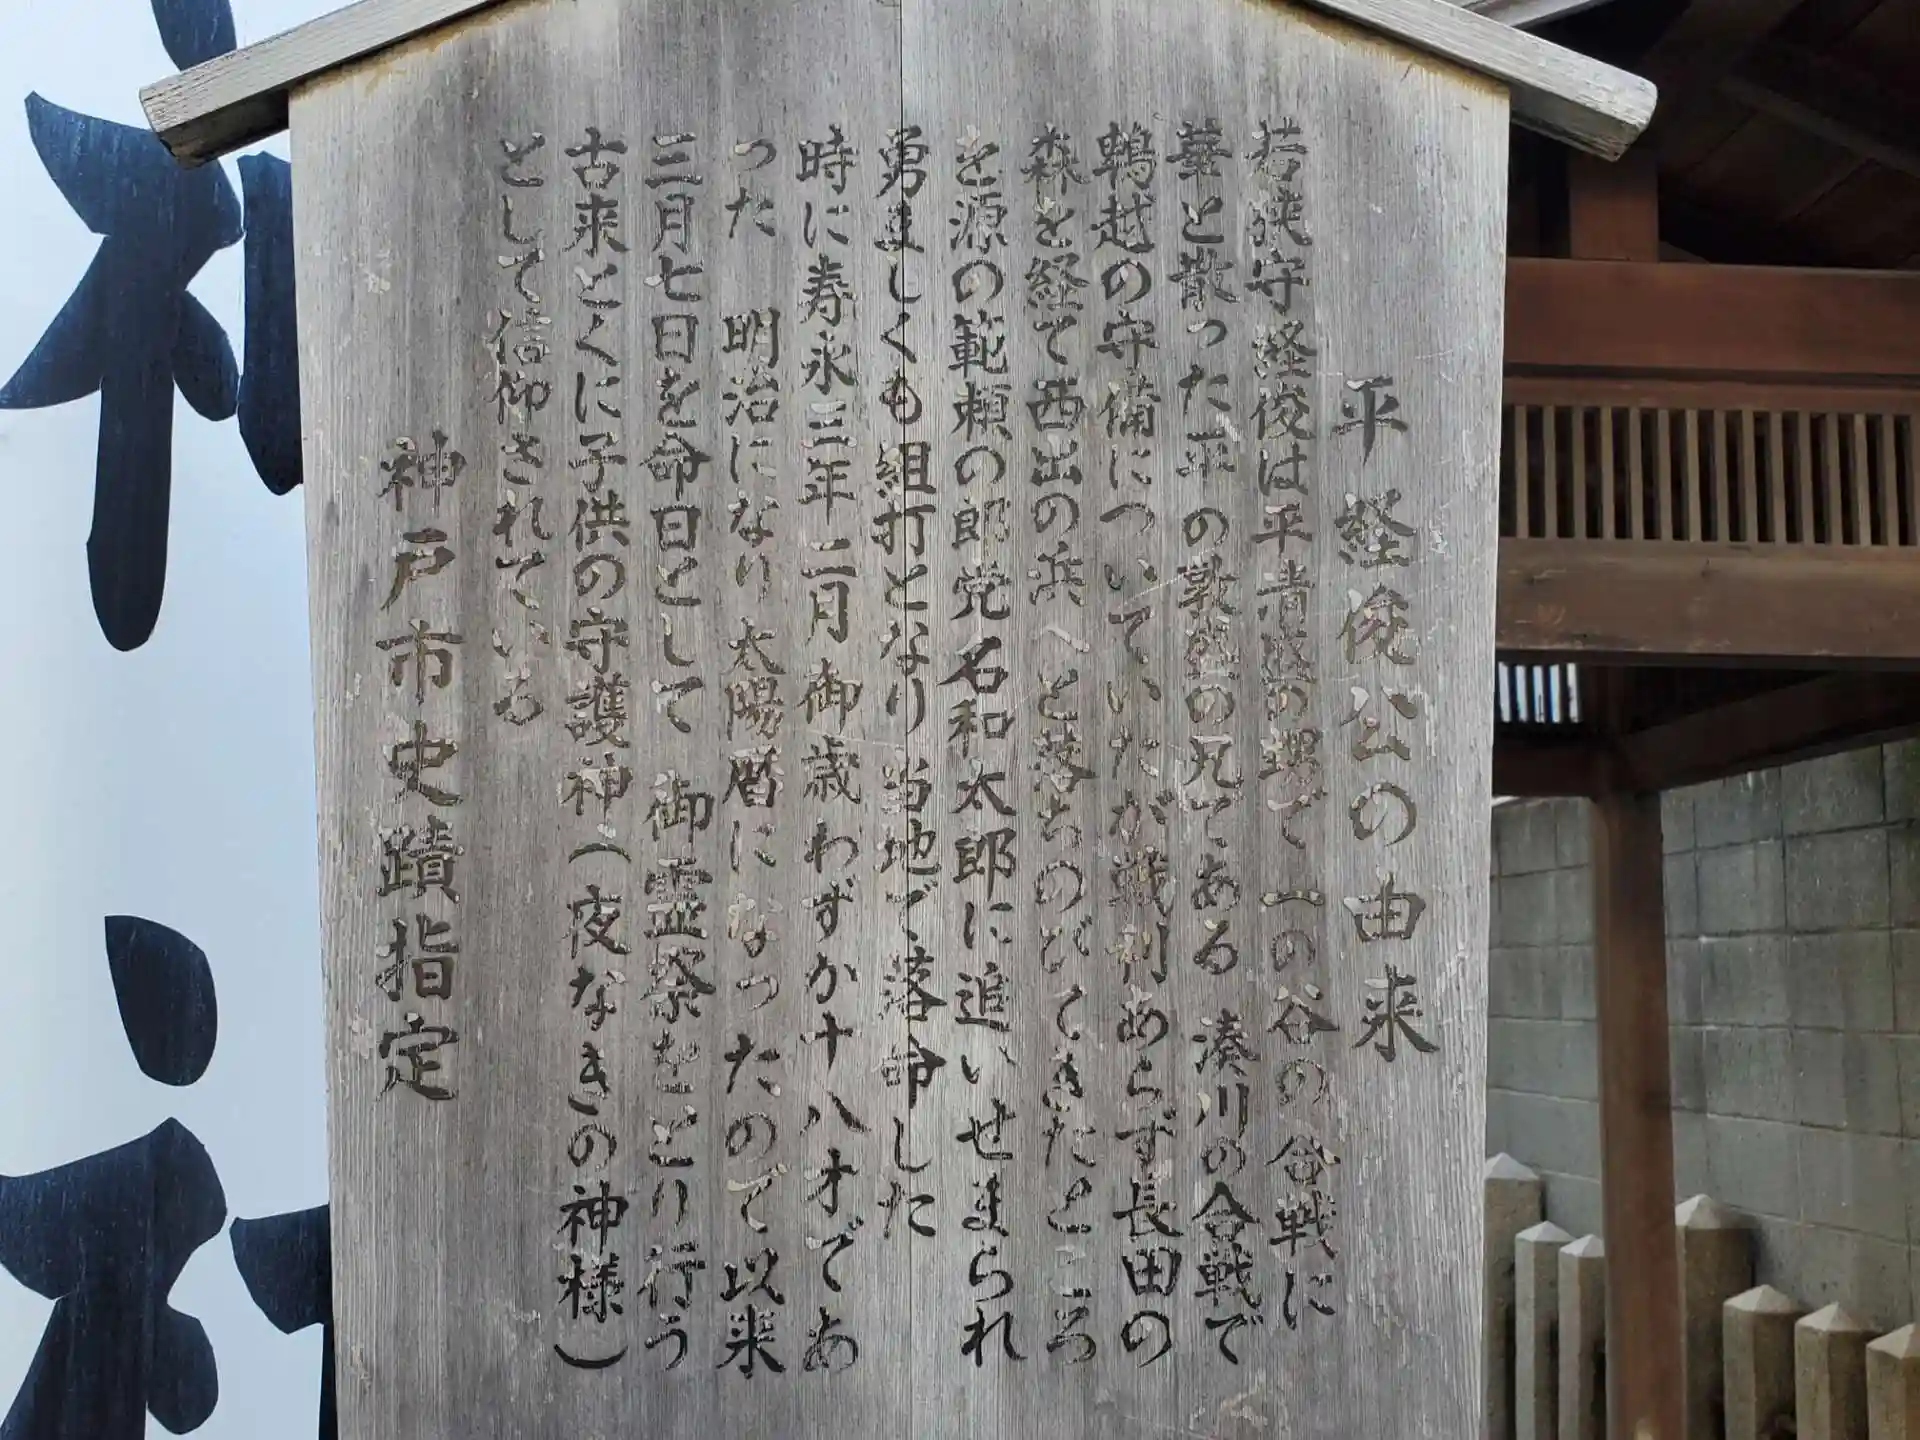 平経俊公の由来
若狭守経俊は平清盛の甥で一の谷の合戦に
華と散った平の敦盛の兄である 湊川の合戦で
鵯越の守備についていたが戦利あらず長田の
森を経て西出の浜へと落ちのびてきたところ
を源の範頼の郎党名和太郎に追いせまられ
勇ましくも組打となり当地で落命した
時に寿永三年二月御歳わずか十八才であ
った 明治になり太陽暦になったので以来
三月七日を命日として 御霊祭をとり行う
古来とくに子供の守護神（夜なきの神様）
として信仰されている
神戸市史蹟指定